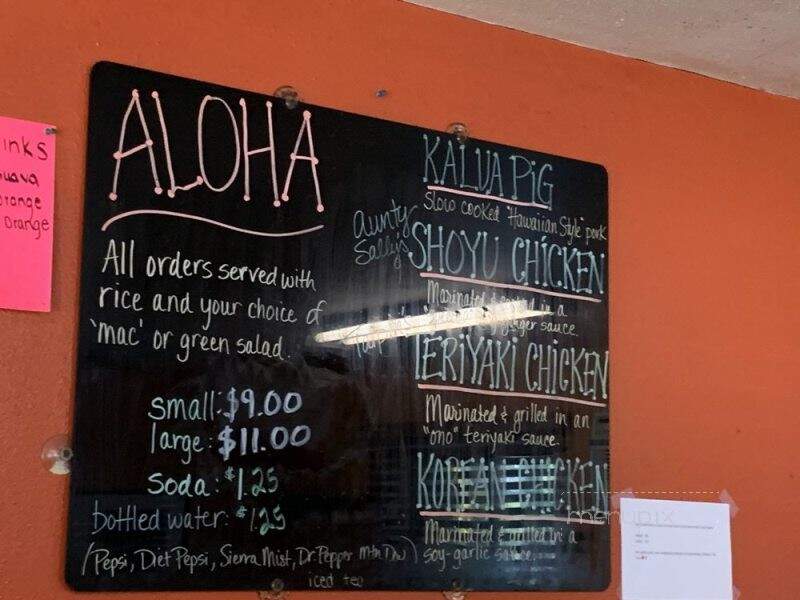 ALOHA
All orders served with
rice and your choice of
'mac' or green salad.
small: $9.00
large: $11.00
soda: $1.25
bottled water: $1.25
(Pepsi, Diet Pepsi, Sierra Mist, Dr. Pepper Mtn Dew)
iced tea
KALUA PIG
Slow cooked Hawaiian Style pork
aunty
Sally's
SHOYU CHICKEN
Marinated & in a
ginger sauce.
TERIYAKI CHICKEN
Marinated & grilled in an
"ono" teriyaki sauce.
KOREAN CHICKEN
Marinated & grilled in a
soy-garlic sauce.
inks
uava
orange
Orange
menupix